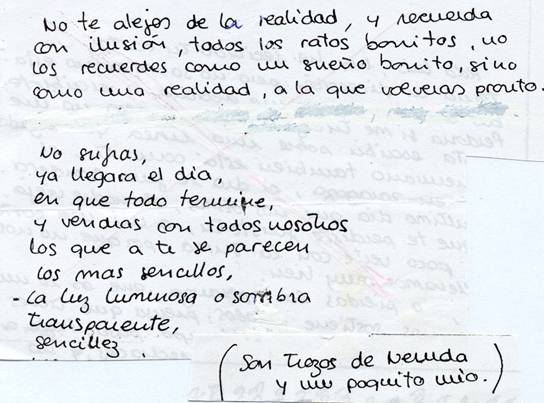 No te alejes de la realidad, y recuerda
con ilusión, todos los ratos bonitos, no
los recuerdes como un sueño bonito, sino
como una realidad, a la que volveras pronto.
No sufras,
ya llegara el dia,
en que todo termine,
y vendras con todos nosotros
los que a te se parecen
los mas sencillos,
- La luz luminosa o sombra
transparente,
sencillez
(Son trozos de Neruda
y un poquito mio.)